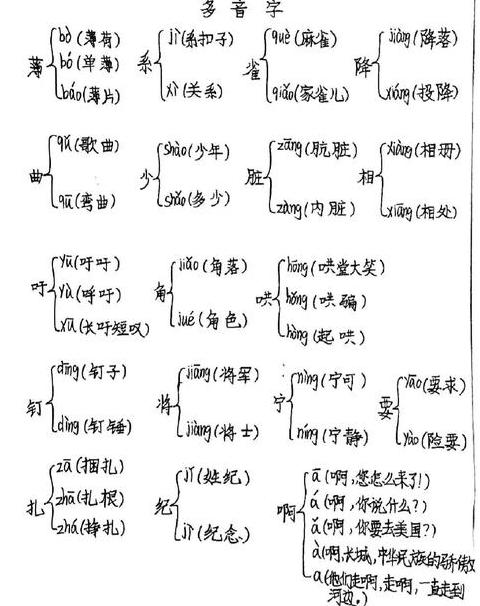 多音字
薄 bò(薄荷) bó(单薄) báo(薄片)
系 jì(系扣子) xì(关系)
雀 què(麻雀) qiǎo(家雀儿)
降 jiàng(降落) xiáng(投降)
曲 qǔ(歌曲) qū(弯曲)
少 shào(少年) shǎo(多少)
脏 zāng(肮脏) zàng(内脏)
相 xiàng(相册) xiāng(相处)
吁 yū(吁吁) yù(呼吁) xū(长吁短叹)
角 jiǎo(角落) jué(角色)
哄 hōng(哄堂大笑) hǒng(哄骗) hòng(起哄)
钉 dīng(钉子) dìng(钉锤)
将 jiāng(将军) jiàng(将士)
宁 nìng(宁可) níng(宁静)
要 yāo(要求) yào(险要)
扎 zā(捆扎) zhā(扎根) zhá(挣扎)
纪 jǐ(姓纪) jì(纪念)
啊 ā(啊,您怎么来了!) á(啊,你说什么?) ǎ(啊,你要去美国?) à(啊,长城,中华民族的骄傲 a(他们走啊,走啊,一直走到
河边。)